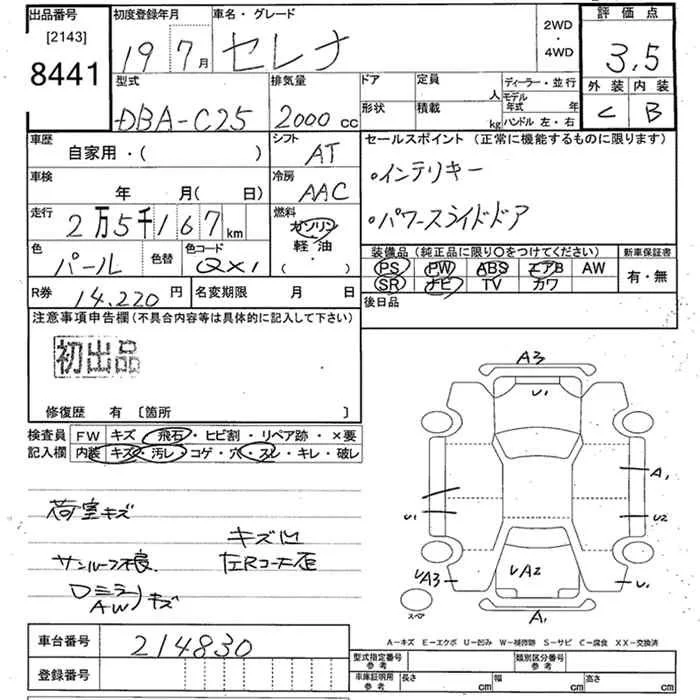 出品番号 初度登録年月 車名・グレード 評価点
[2143]
8441
19 7月 セレナ 2WD・4WD 3,5
型式 排気量 ドア 定員 人 ディーラー・並行 外装 内装
DBA-C25 2000cc 形状 積載 kg モデル年式 年 ハンドル 左・右 C B
車歴 シフト セールスポイント (正常に機能するものに限ります)
自家用・( ) AT
・インテリキー
車検 冷房
年 月( 日) AAC
・パワースライドドア
走行 燃料
2万5千167km ガソリン
軽油・( )
色 色替 色コード 装備品 (純正品に限り○をつけてください) 新車保証書
パール QX1 PS PW ABS エアB AW 有・無
SR ナビ TV カワ
R券 14,220円 名変期限 月 日 後日品
注意事項申告欄(不具合内容等は具体的に記入して下さい)
初出品
修復歴 有 〔箇所 〕
検査員 FW キズ・飛石・ヒビ割・リペア跡・×要
記入欄 内装 キズ・汚レ・コゲ・穴・スレ・キレ・破レ
A3
U1
A1
U1 U2
UA3 UA2 U1
スペア A1
荷室キズ
キズ凹
サンルーフ不良 左Rコーナー歪
Dミラー
AW キズ
A-キズ E-エクボ U-凹み W-補修跡 S-サビ C-腐食 XX-交換済
車台番号 214830
型式指定番号 参考 類別区分番号 参考
登録番号 車庫証明用 参考 長さ cm 幅 cm 高さ cm